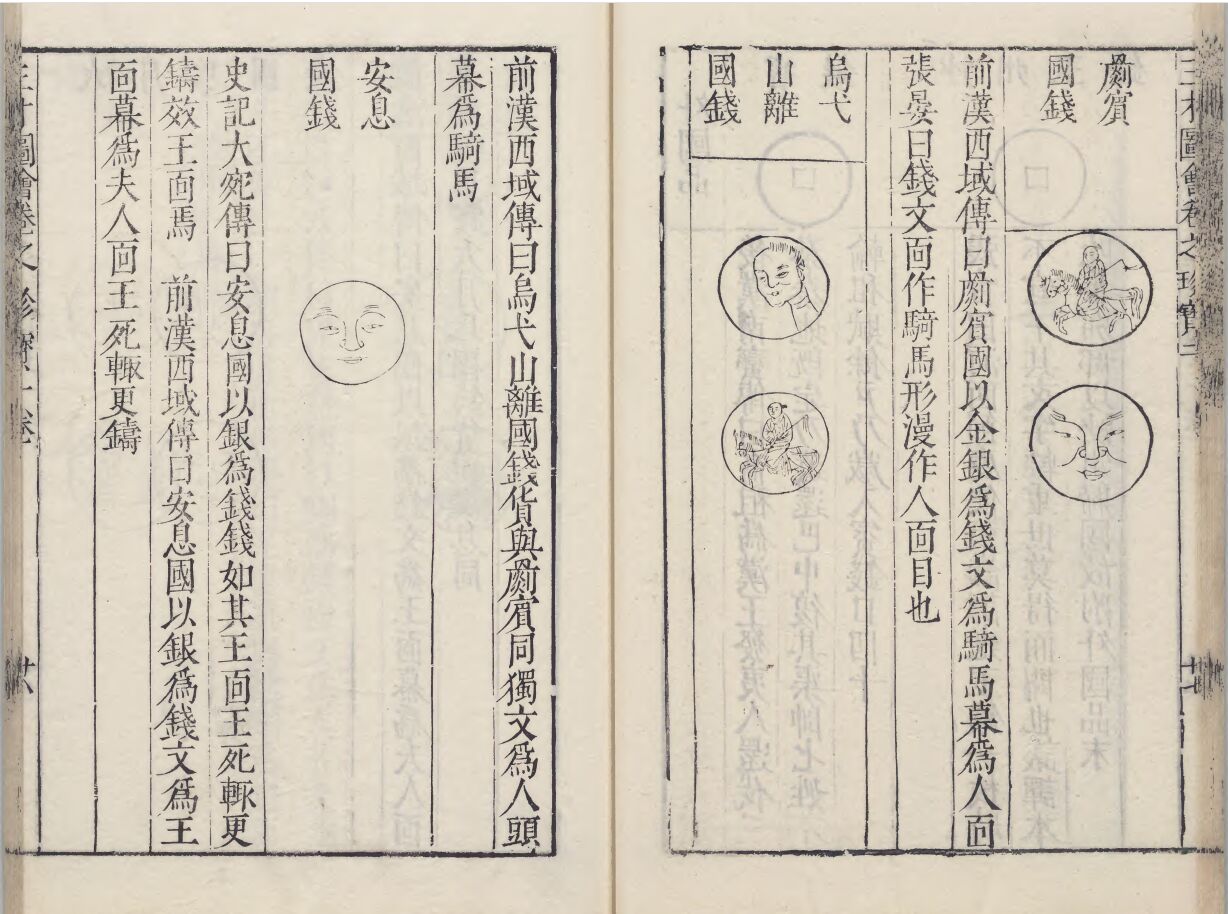 罽賓
國錢
前漢西域傳曰罽賓國以金銀爲錢文爲騎馬幕爲人面
張晏曰錢文面作騎馬形漫作人面目也
烏弋
山離
國錢
前漢西域傳曰烏弋山離國錢貨與罽賓同獨文爲人頭
幕爲騎馬
安息
國錢
史記大宛傳曰安息國以銀爲錢錢如其王面王死輙更
鑄效王面焉　前漢西域傳曰安息國以銀爲錢文爲王
面幕爲夫人面王死輙更鑄
圖會卷之
廿六